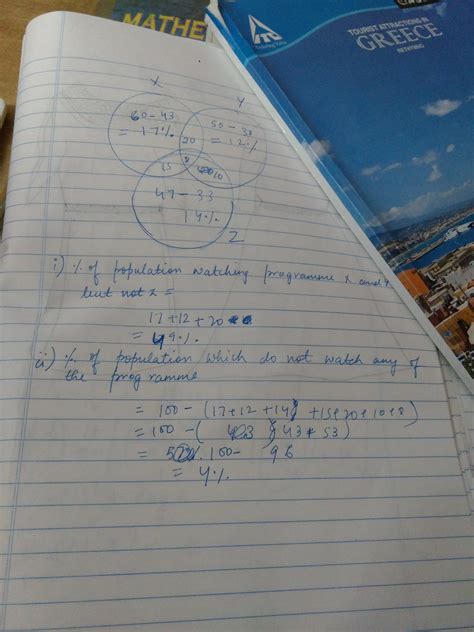 MATHE
ATC
TOURIST ATTRACTIONS IN
GREECE
X
Y
60-43
= 17%
50-38
= 12%
20
8
15
10
47-33
14%
Z
i) % of population watching programme x and y
but not z =
17+12+20
= 49%
ii) % of population which do not watch any of
the programme
= 100 - (17+12+14) +15+20+10+8)
= 100 - ( 43 } 43+53)
= 100- 96
= 4%